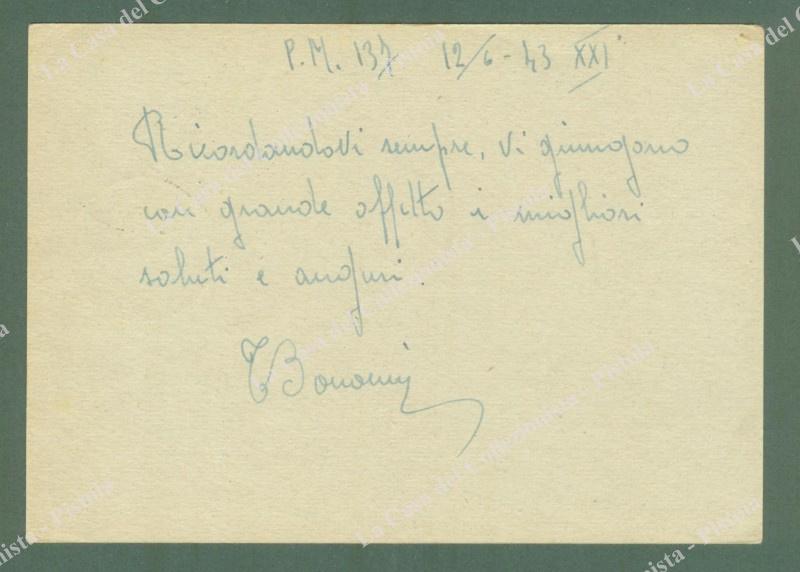 P.M. 137 12/6-43 XXI°
Ricordandovi sempre, vi giungano
con grande affetto i migliori
saluti e auguri.
T Bonomi
La Casa del Collezionista - Pistoia